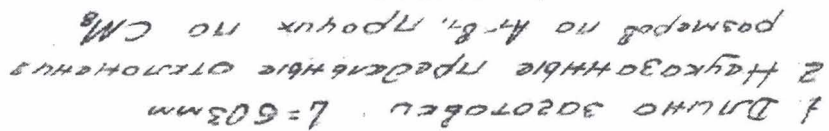 1. Длина заготовки L=503мм
2. Неуказанные предельные отклонения
размеров по A7, B7, прочих по СМ8